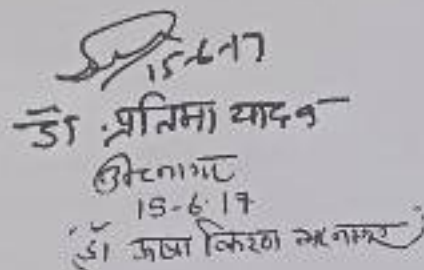 15-6-17
डॉ. प्रतिमा यादव
15-6-17
(डॉ ऊषा किरण भटनागर)